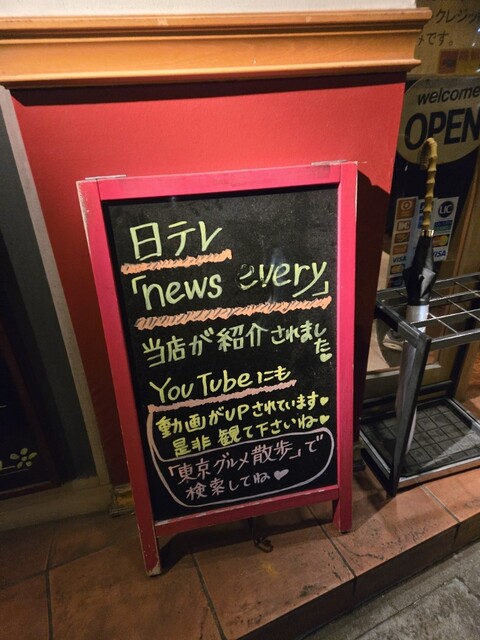 クレジット
です。
welcome
OPEN
日テレ
「news every」
当店が紹介されました♥
YouTubeにも
動画がUPされています♥
是非観て下さいね♥
「東京グルメ散歩」で
検索してね♥
VISA